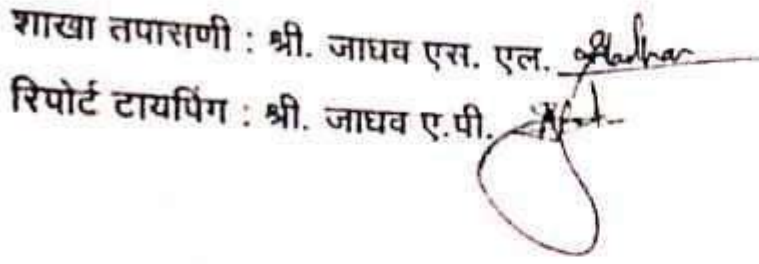 शाखा तपासणी : श्री. जाधव एस. एल.
रिपोर्ट टायपिंग : श्री. जाधव ए.पी.